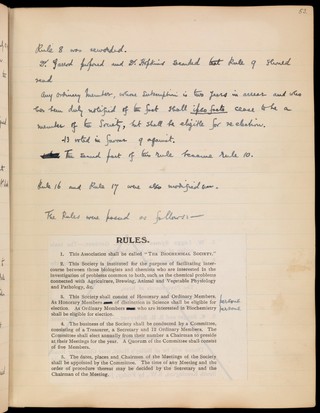 82
Rule 8 was reworded.
Dr. Garrod proposed and Dr. Hopkins seconded that Rule 9 should
read
Any ordinary Member, whose subscription is two years in arrear and who
has been duly notified of the fact shall ipso facto cease to be a
member of the Society, but shall be eligible for re-election.
13 voted in favour against.
The second part of this rule became Rule 10.
Rule 16 and Rule 17 were also modified
The Rules were passed as follows:—
RULES.
1. This Association shall be called "THE BIOCHEMICAL SOCIETY."
2. This Society is instituted for the purpose of facilitating inter-
course between those biologists and chemists who are interested in the
investigation of problems common to both, such as the chemical problems
connected with Agriculture, Brewing, Animal and Vegetable Physiology
and Pathology, &c.
3. This Society shall consist of Honorary and Ordinary Members.
As Honorary Members of distinction in Science shall be eligible for persons
election. As Ordinary Members who are interested in Biochemistry persons
shall be eligible for election.
4. The business of the Society shall be conducted by a Committee,
consisting of a Treasurer, a Secretary and 12 Ordinary Members. The
Committee shall elect annually from their number a Chairman to preside
at their Meetings for the year. A Quorum of the Committee shall consist
of five Members.
5. The dates, places and Chairmen of the Meetings of the Society
shall be appointed by the Committee. The time of any Meeting and the
order of procedure thereat may be decided by the Secretary and the
Chairman of the Meeting.